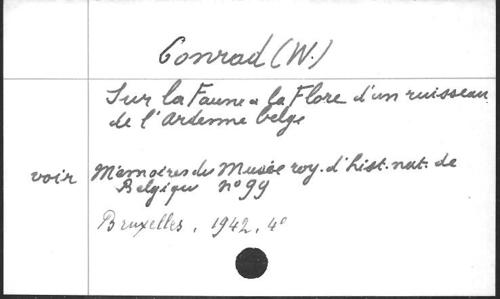 Conrad (W.)
Sur la Faune & la Flore d'un ruisseau
de l'Ardenne belge
voir Mémoires du Musée roy. d'hist. nat. de
Belgique n° 99
Bruxelles, 1942, 4°